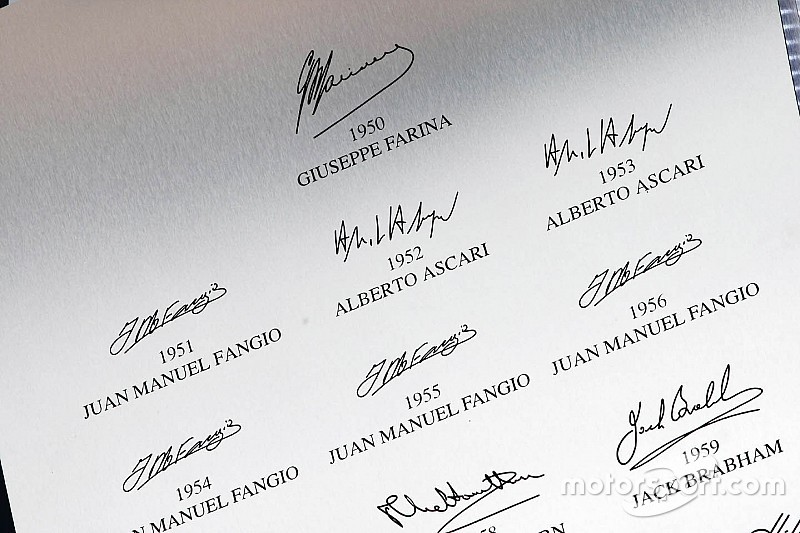 1950
GIUSEPPE FARINA
1951
JUAN MANUEL FANGIO
1952
ALBERTO ASCARI
1953
ALBERTO ASCARI
1954
MANUEL FANGIO
1955
JUAN MANUEL FANGIO
1956
JUAN MANUEL FANGIO
1959
JACK BRABHAM
motorsport.com